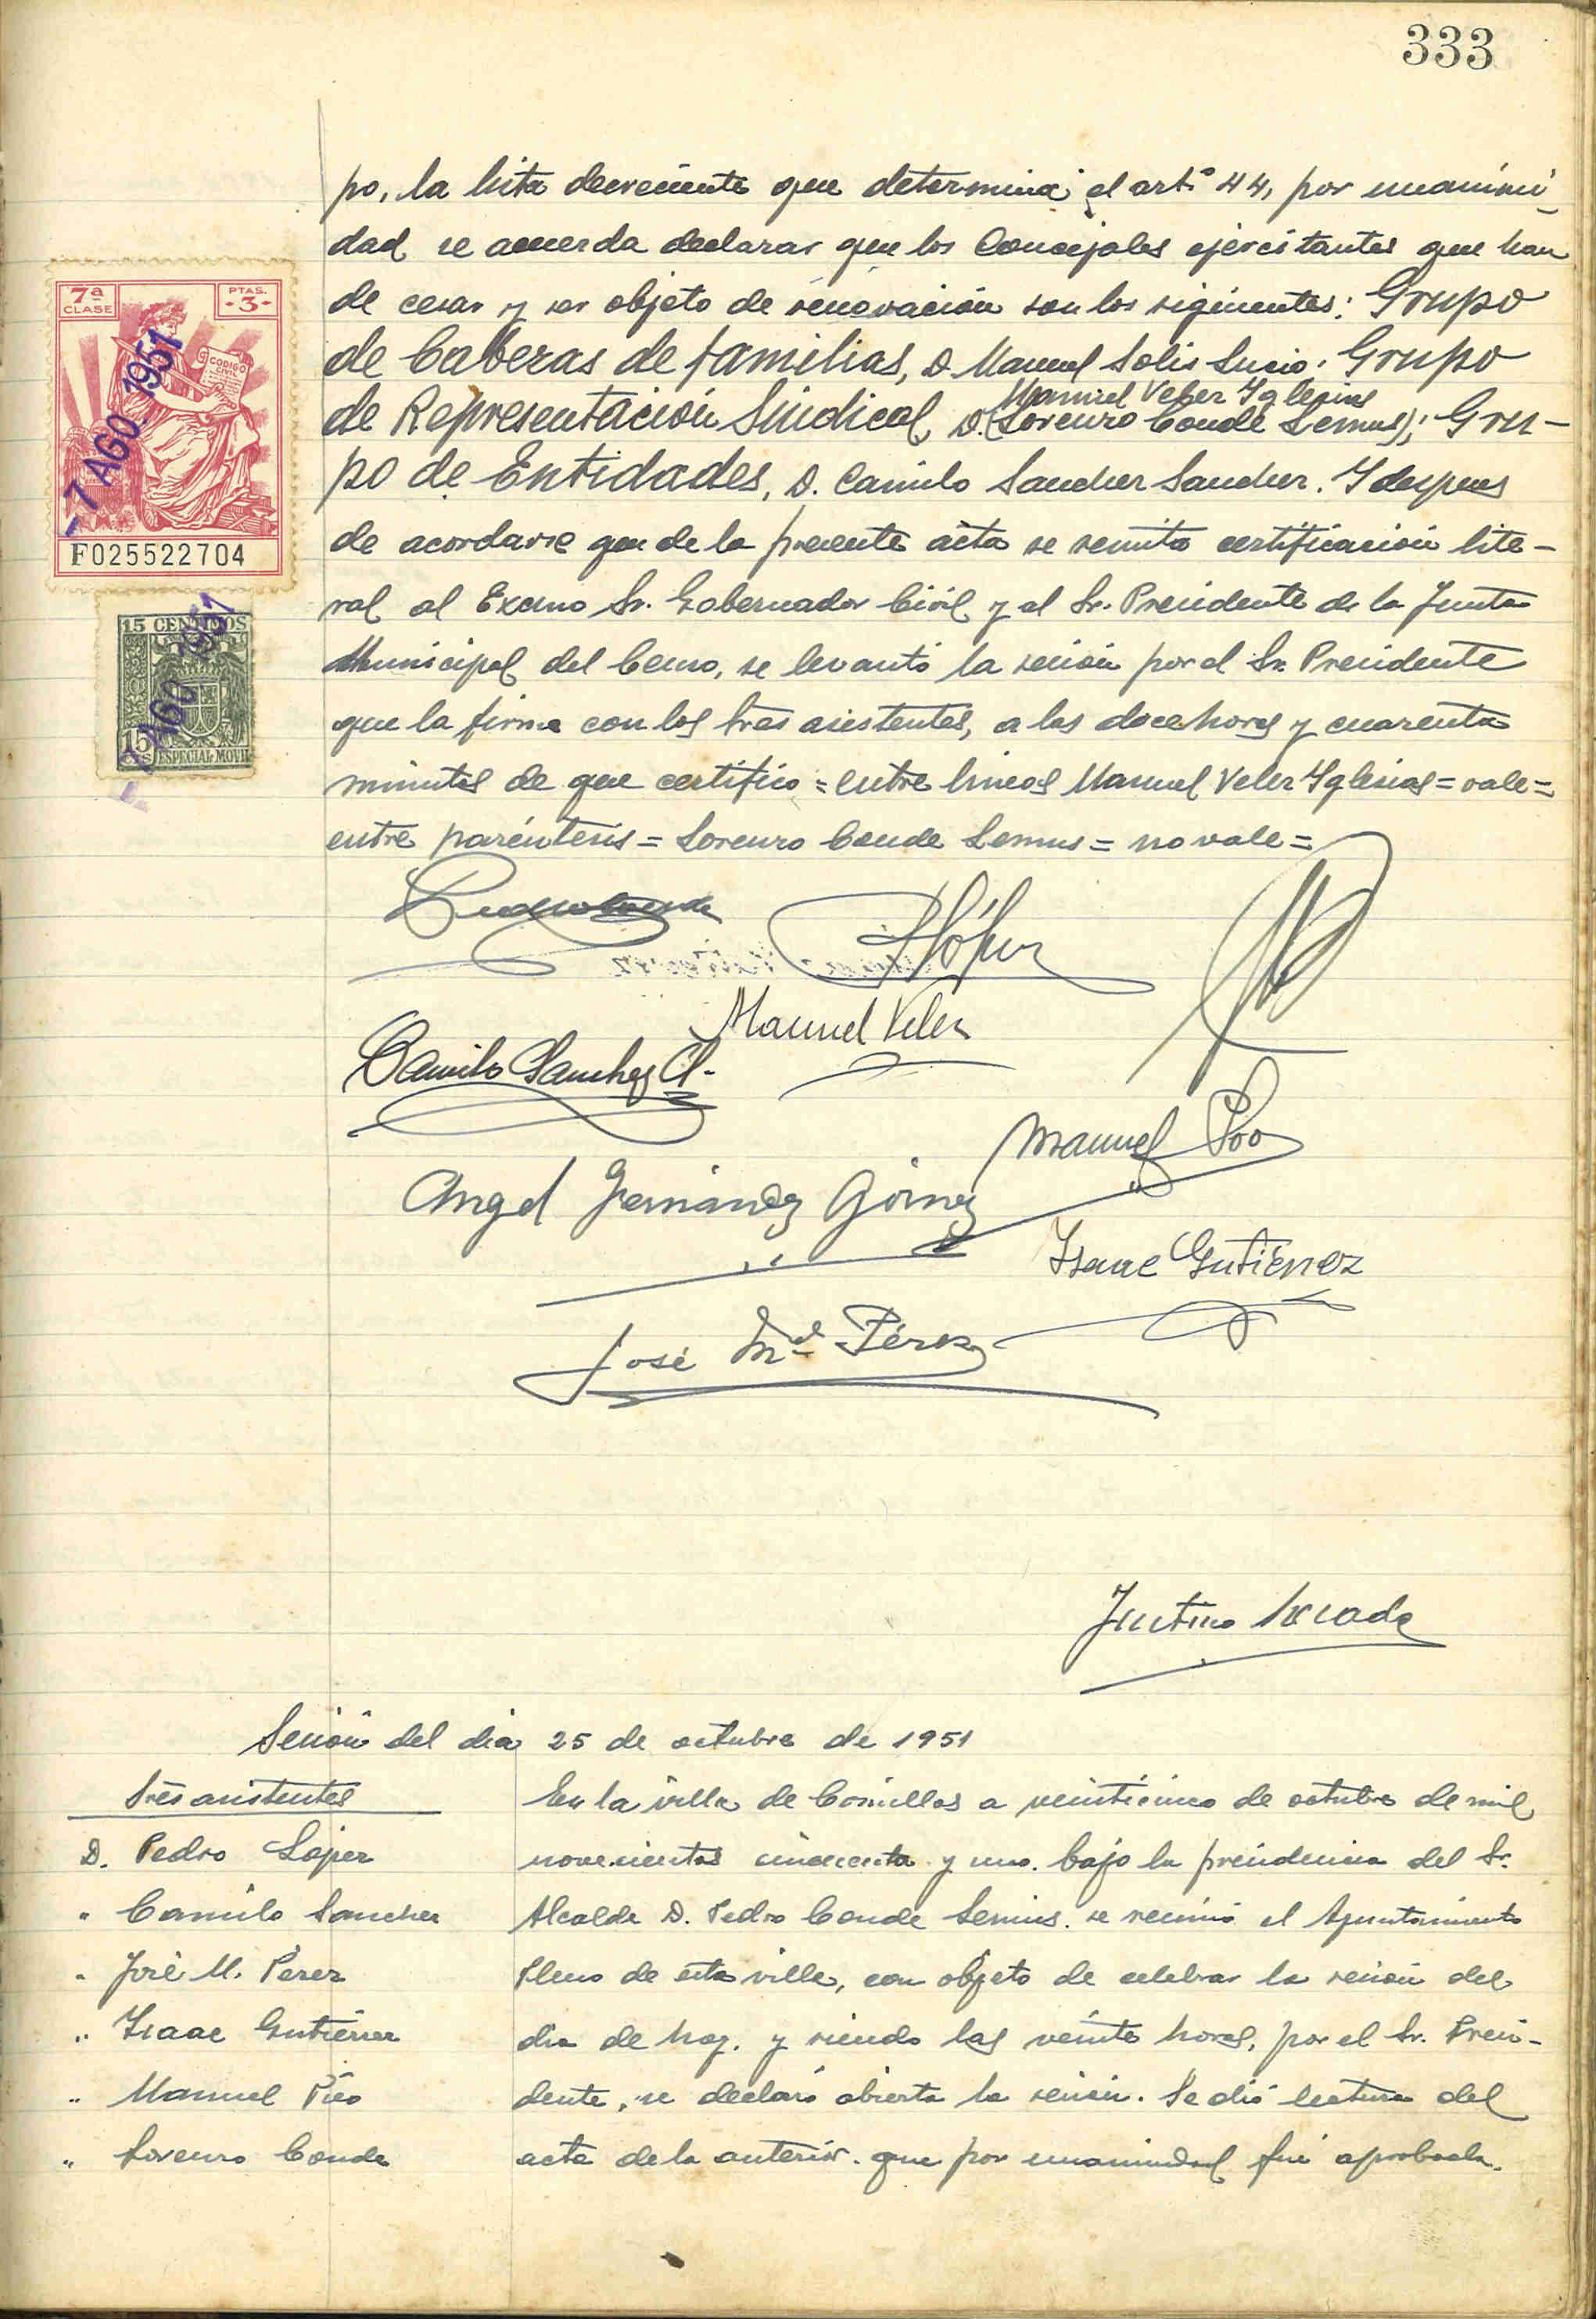 333
po, la lista decreciente que determina el artº 44, por unanimi-
dad se acuerda declarar que los Concejales ejercitantes que han
de cesar y ser objeto de renovación son los siguientes: Grupo
de Cabezas de familias, D. Manuel Solis Sucio: Grupo
Manuel Velez Yglesias
de Representación Sindical, D. (Lorenzo Conde Lemus); Gru-
po de Entidades, D. Camilo Sanchez Sanchez. Y despues
de acordarse que de la presente acta se remita certificación lite-
ral al Excmo Sr. Gobernador Civil y al Sr. Presidente de la Junta
Municipal del Censo, se levantó la sesión por el Sr. Presidente
que la firma con los Sres asistentes, a las doce horas y cuarenta
minutos de que certifico = entre lineas Manuel Velez Yglesias = vale =
entre paréntesis = Lorenzo Conde Lemus = no vale =
7ª CLASE
PTAS. -3-
CODIGO CIVIL
-7 AGO. 1951
F025522704
15 CENTIMOS
-7 AGO 1951
15 CTS ESPECIAL MOVIL
PLópez
Manuel Velez
Camilo Sanchez
Manuel Poo
Angel Fernández Gómez
Isaac Gutiérrez
José Mª Pérez
Justino
Sesión del dia 25 de octubre de 1951
Sres asistentes
D. Pedro López
" Camilo Sanchez
" José M. Pérez
" Isaac Gutiérrez
" Manuel Póo
" Lorenzo Conde
En la villa de Comillas a veinticinco de octubre de mil
novecientos cincuenta y uno. bajo la presidencia del Sr.
Alcalde D. Pedro Conde Lemus. se reunió el Ayuntamiento
Pleno de esta villa, con objeto de celebrar la sesión del
dia de hoy. y siendo las veinte horas, por el Sr. Presi-
dente, se declaró abierta la sesión. Se dió lectura del
acta de la anterior. que por unanimidad fué aprobada.